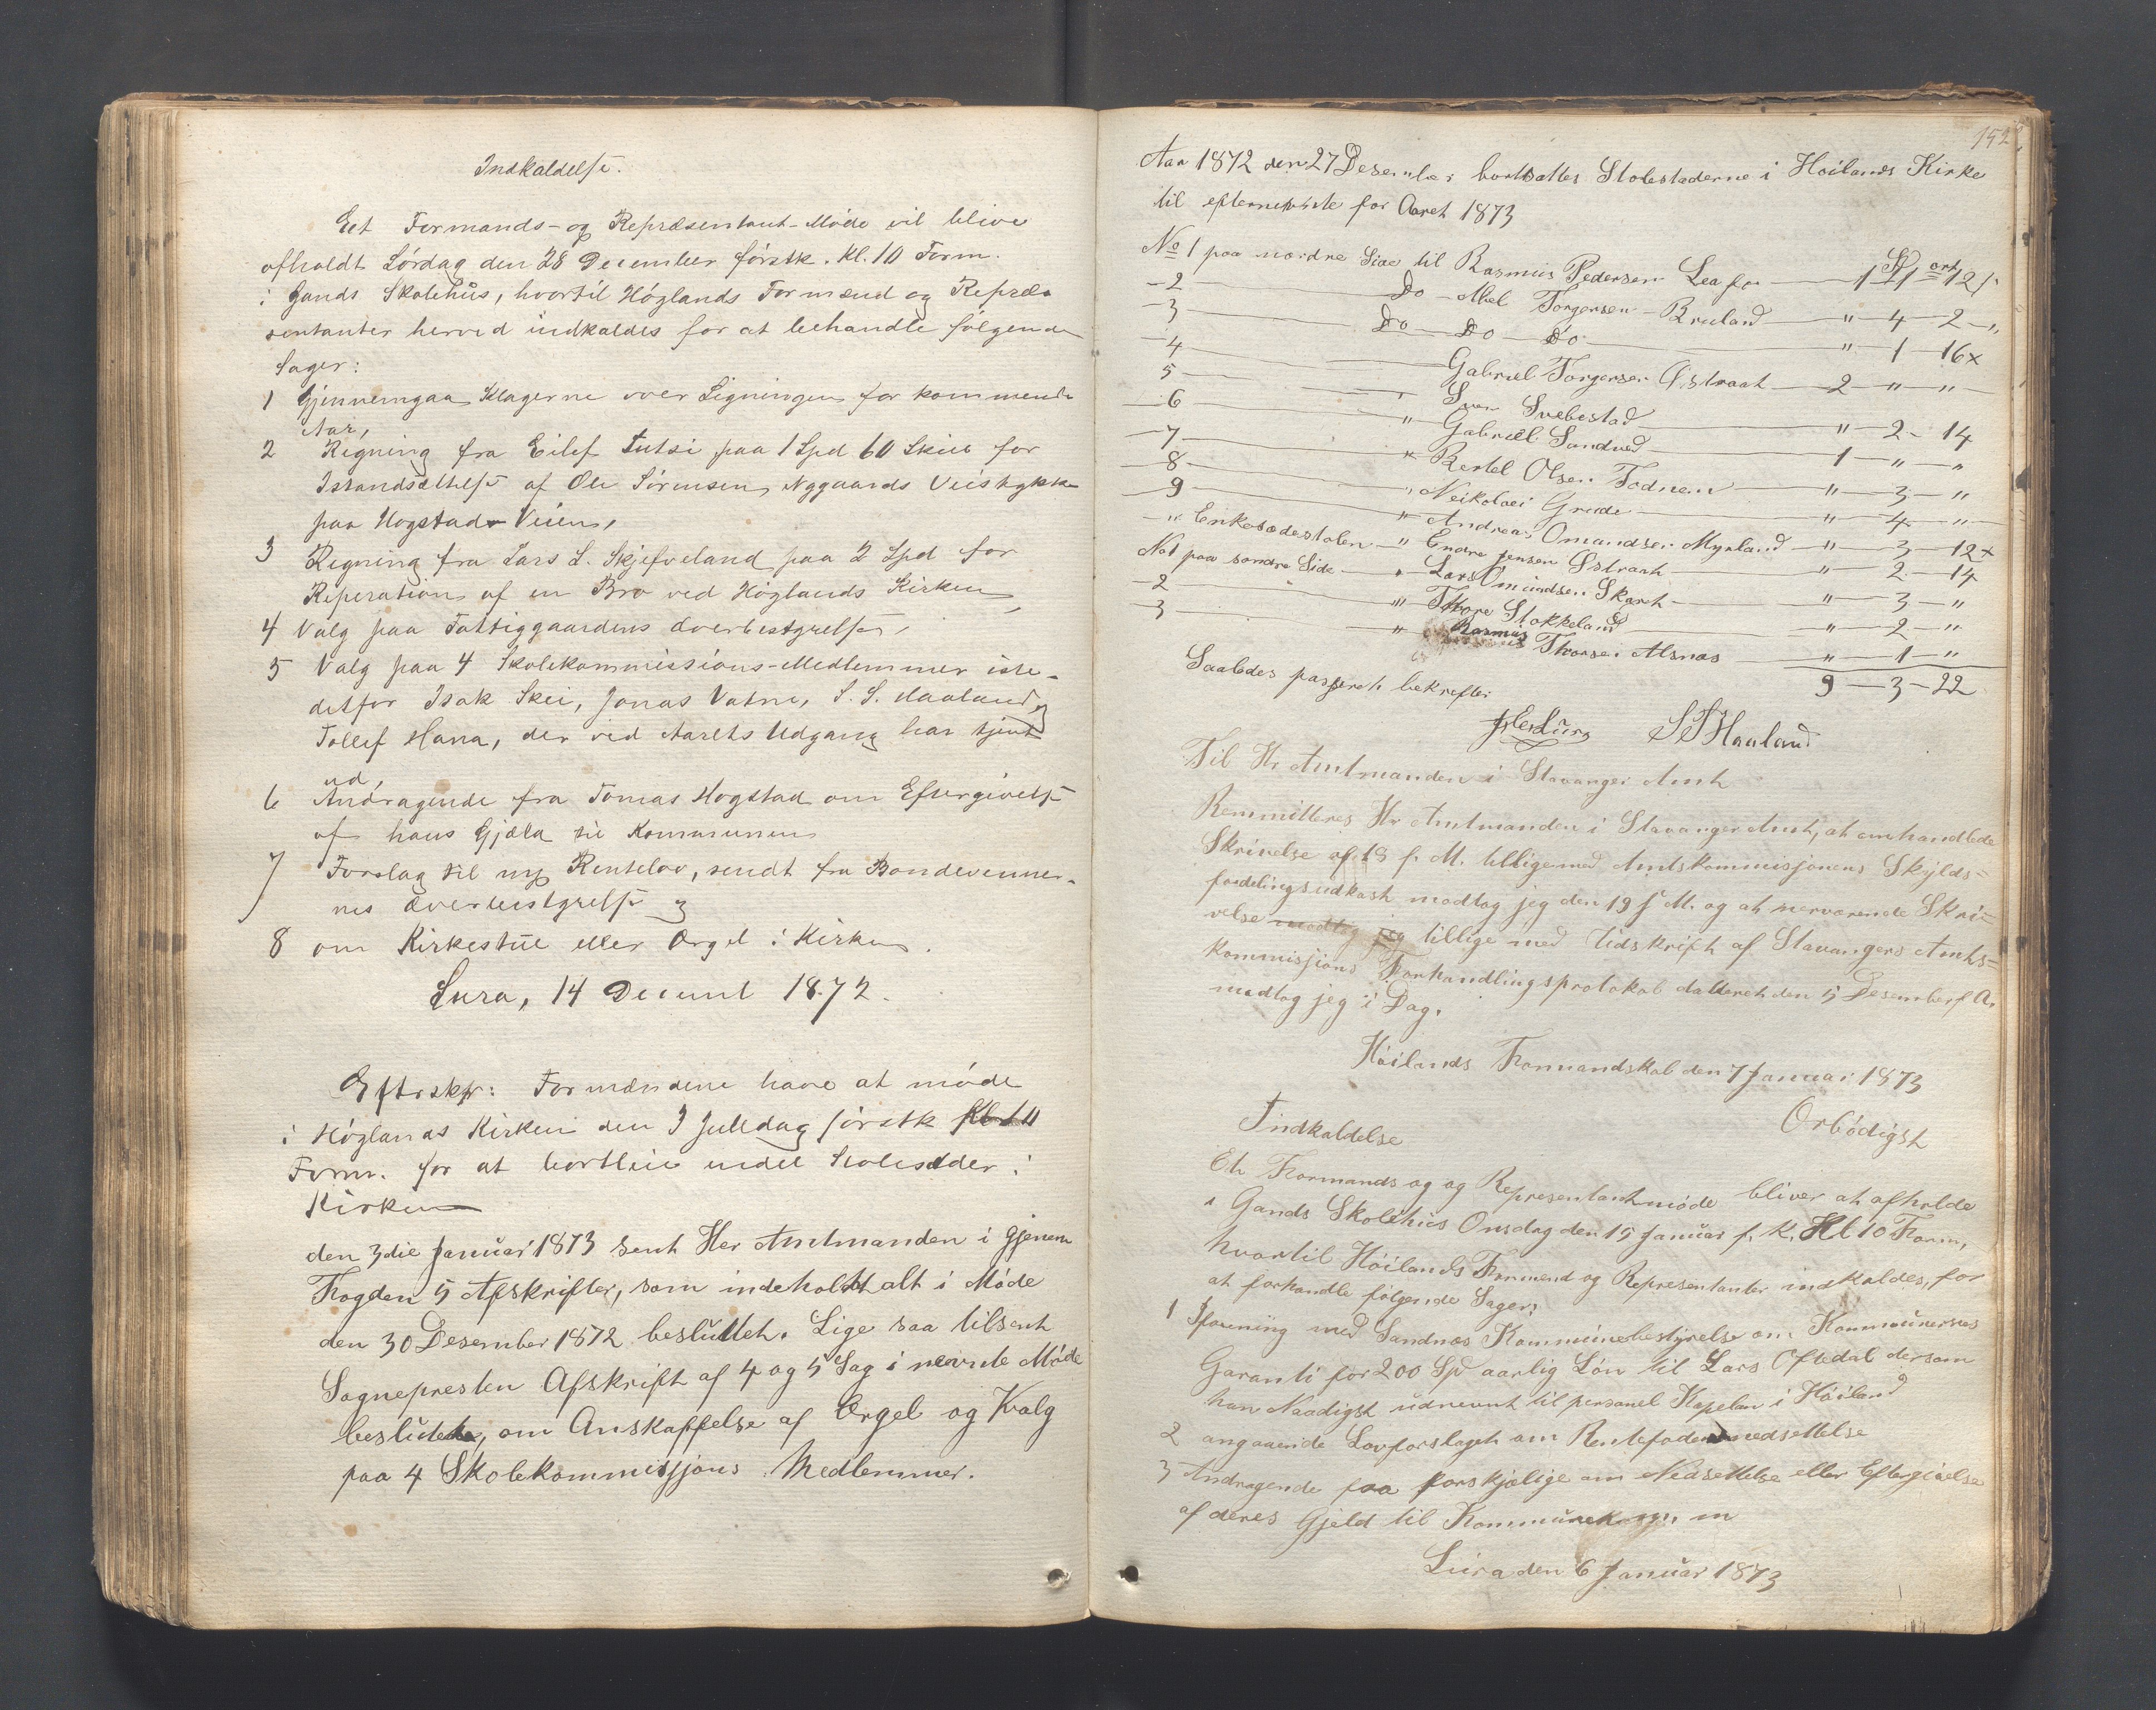 Indkaldelse.
Eet Formands- og Repræsentant-Møde vil blive
afholdt Lørdag den 28 December førstk. Kl. 10 Form.
i Gands Skolehus, hvortil Høglands Formænd og Repræ-
sentanter herved indkaldes for at behandle følgende
Sager:
1 Gjennemgaa Klagerne over Ligningen for kommende
Aar,
2 Regning fra Eilef Lutsi paa 1 Spd 60 Skill for
Istandsættelse af Ole Sørensen Nygaards Veistykke
paa Hogstad-Veien,
3 Regning fra Lars L. Skjefveland paa 2 Spd for
Reperation af en Bro ved Høglands Kirken,
4 Valg paa Fattiggaardens Overbestyrelse,
5 Valg paa 4 Skolekommissions-Medlemmer iste-
detfor Isak Skei, Jonas Vatne, S. S. Haaland og
Tollef Hana, der ved Aarets Udgang har tjent
ud,
6 Andragende fra Tomas Hogstad om Eftergivelse
af hans Gjæld til Kommunen
7 Forslag til ny Rentelov, sendt fra Bondevenner-
nes Overbestyrelse og
8 om Kirkestue eller Orgel i Kirken.
Lura, 14 Decembr 1872.
Efterskr: Formændene have at møde
i Høglands Kirken den 3 Juledag førstk Kl 10
Form. for at bortleie endel Stolesæder i
Kirken
den 3die Januar 1873 sent Her Amtmanden i gjenem
Fogden 5 Afskrifter, som indeholdt alt i Møde
den 30 Desember 1872 besluttet. Lige saa tilsent
Sognepresten Afskrift af 4 og 5 Sag i nevnte Møde
besluttet, om Anskaffelse af Orgel og Valg
paa 4 Skolekommissjons Medlemmer.
152
Aar 1872 den 27 Desember bortsattes Stolestaderne i Høilands Kirke
til efternevnte for Aaret 1873
No 1 paa nordre Side til Rasmus Pedersen Lea for — 1 Sp 1 ort 12 s
-2 — Do - Abel Torgersen - Bruland — " — 4 — 2 — "
3 — Do — Do — Do — " — 1 — 16 x
4 — Gabriel Torgersen Østraat — 2 — " — "
5 — " Sven Svebestad — " — 2 — 14
6 — " Gabriel Sandved — 1 — " — "
7 — " Bertel Olsen Todnem — " — 3 — "
8 — " Neikolai Grude — " — 4 — "
9 — " Andreas Omandsen Myrland — " — 3 — 12 x
" Enkesædestolen — " Endre Jensen Østraat — " — 2 — 14
No 1 paa søndre Side — " Lars Omundsen Skaret — " — 3 — "
2 — " Thore Stokkeland — " — 2 — "
3 — " Rasmus Thorsen Alsnæs — " — 1 — "
9 — 3 — 22
Saaledes passeret bekrefter
S S Haaland
Til Hr Amtmanden i Stavanger Amt
Remmitteres Hr Amtmanden i Stavanger Amt, at omhandlede
Skrivelse af 18 f. M. tilligemed Amtskommisjonens Skylds-
fordelingsudkast modtog jeg den 19 f M. og at nerværende Skri-
velse modtog jeg tillige med Udskrift af Stavangers Amts-
kommisjions Forhandlingsprotokol datteret den 5 Desember f A.
modtog jeg i Dag.
Høilands Formandskab den 7 Januar 1873
Ærbødigst
Indkaldelse
Et Formands og og Representantmøde bliver at afholde
i Gands Skolehus Onsdag den 15 Januar f. K. Kl 10 Form,
hvortil Høilands Formend og Representanter indkaldes, for
at forhandle følgende Sager:
1 Forening med Sandnæs Kommunebestyrelse om Kommunernes
Garanti for 200 Sp aarlig Løn til Lars Oftedal dersom
han Naadigst udnevnt til personel Kapelan i Høiland
2 angaaende Lovforslaget om Rentefodens nedsettelse
3 Andragende fra forskjelige om Nedsettelse eller Eftergivelse
af deres Gjeld til Kommunekassen
Lura den 6 Januar 1873